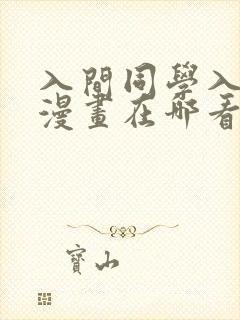 入間同學入
漫畫在哪看
寶山